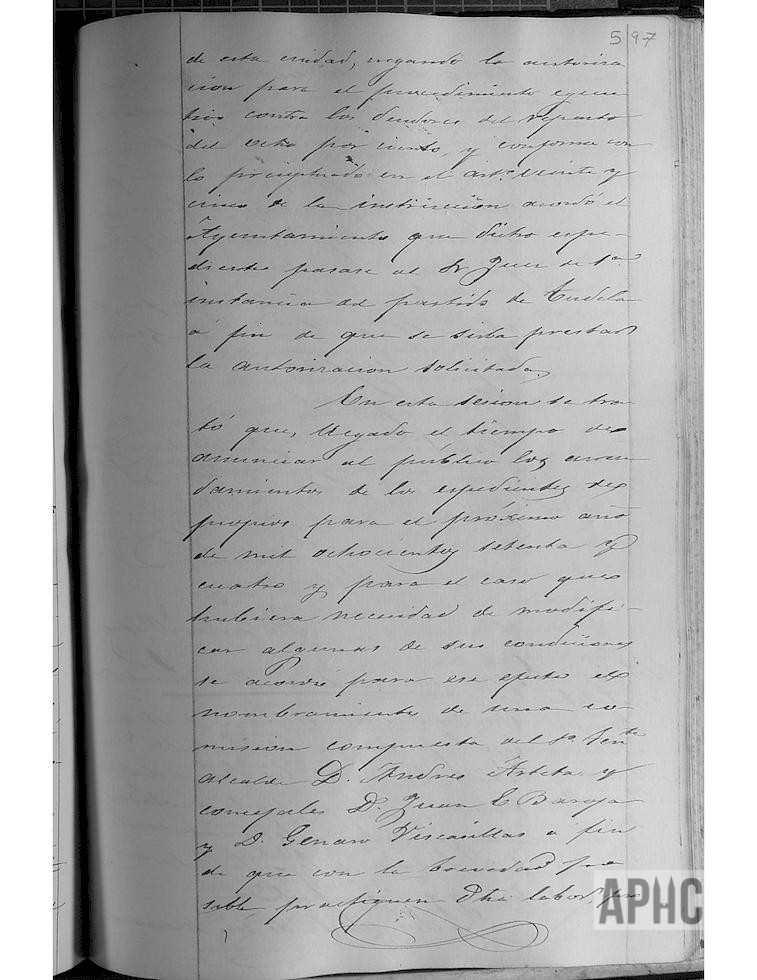 597
de esta ciudad, negando la autoriza
cion para el procedimiento ejecu
tivo contra los deudores del reparto
del ocho por ciento, y conforme con
lo preceptuado en el artº. veinte y
cinco de la instruccion acordó el
Ayuntamiento que dicho espe-
diente pasase al Sr Juez de 1ª
instancia del partido de Tudela
á fin de que se sirva prestar
la autorizacion solicitada,
En esta sesion se tra
tó que, llegado el tiempo de
anunciar al público los arren
damientos de los espedientes de
propios para el próximo año
de mil ochocientos setenta y
cuatro y para el caso que
hubiera necesidad de modifi-
car algunas de sus condiciones
se acordó para ese efecto el
nombramiento de una co-
mision compuesta del Sr. Tente
alcalde D. Andres Arteta y
concejales D. Juan C Baroja
y D. Genaro Viscasillas a fin
de que con la brevedad po
sible practiquen dha labor,
APHC